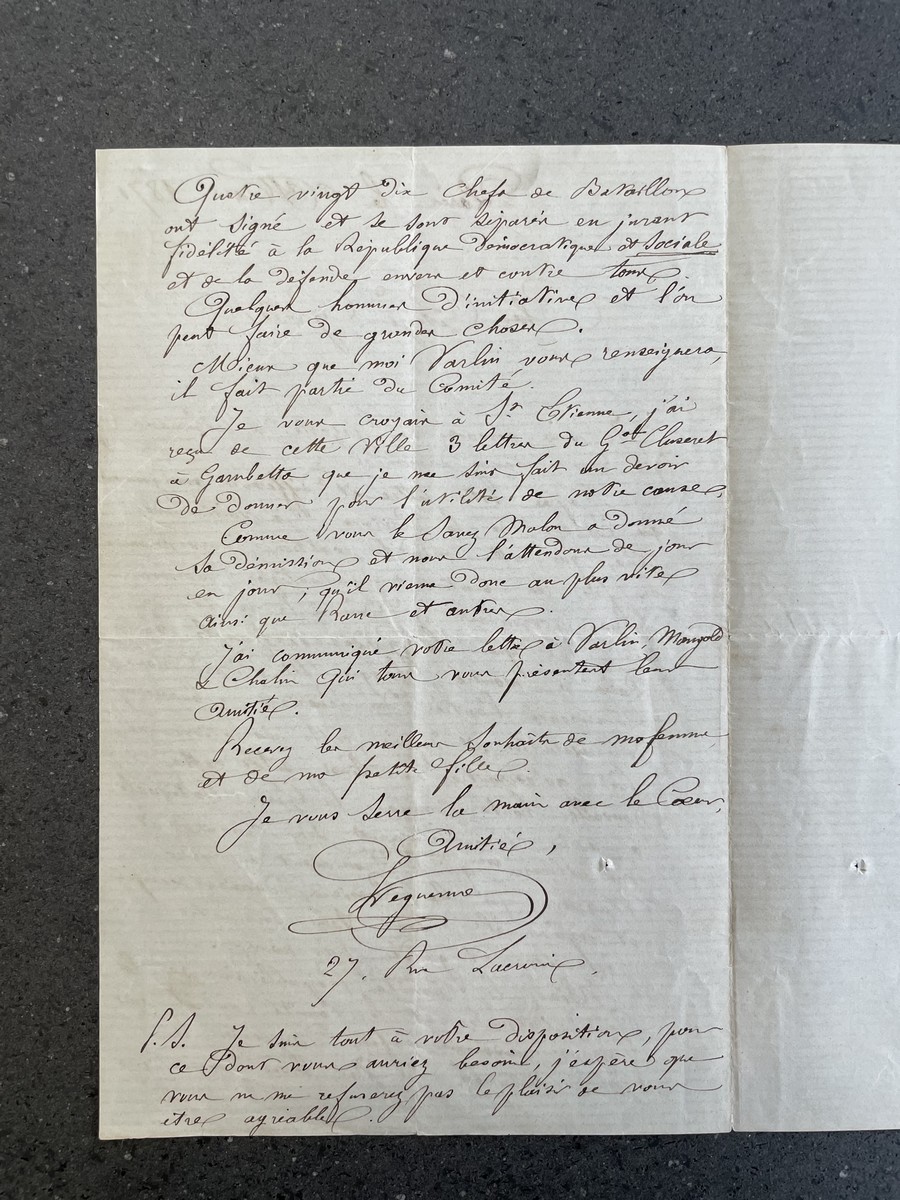 Quatre vingt dix chefs de Bataillons
ont signé et se sont séparés en jurant
fidélité à la République Démocratique et Sociale
et de la défendre envers et contre tous.
Quelques hommes d'initiative et l'on
peut faire de grandes choses.
Mieux que moi Varlin vous renseignera,
il fait partie du Comité.
Je vous croyais à St Etienne, j'ai
reçu de cette ville 3 lettres du Gal Cluseret
à Gambetta que je me suis fait un devoir
de donner pour l'utilité de notre cause,
Comme vous le savez Malon a donné
sa démission et nous l'attendons de jour
en jour, qu'il vienne donc au plus vite
ainsi que Ranc et autres.
J'ai communiqué votre lettre à Varlin, Mangold
& Chalin qui tous vous présentent leur
amitié.
Recevez les meilleurs souhaits de ma femme
et de ma petite fille.
Je vous serre la main avec le Coeur,
Amitié,
27, Rue Lacroix,
P.S. Je suis tout à votre disposition, pour
ce dont vous auriez besoin, j'espère que
vous ne me refuserez pas le plaisir de vous
être agréable.